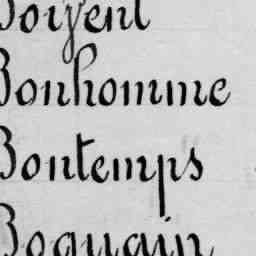 Boyent
Bonhomme
Bontemps
Boquain